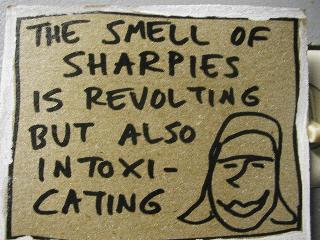 THE SMELL OF
SHARPIES
IS REVOLTING
BUT ALSO
INTOXI-
CATING